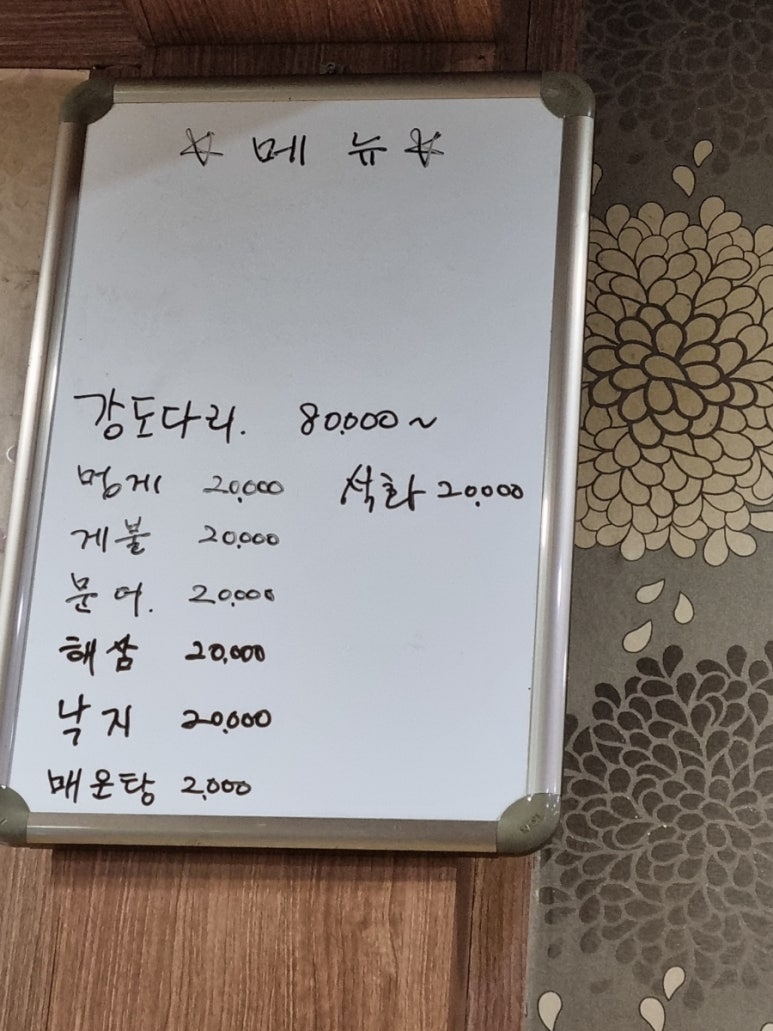 ☆ 메 뉴 ☆
강도다리. 80,000 ~
멍게 20,000 석화 20,000
게불 20,000
문어. 20,000
해삼 20,000
낙지 20,000
매운탕 2,000